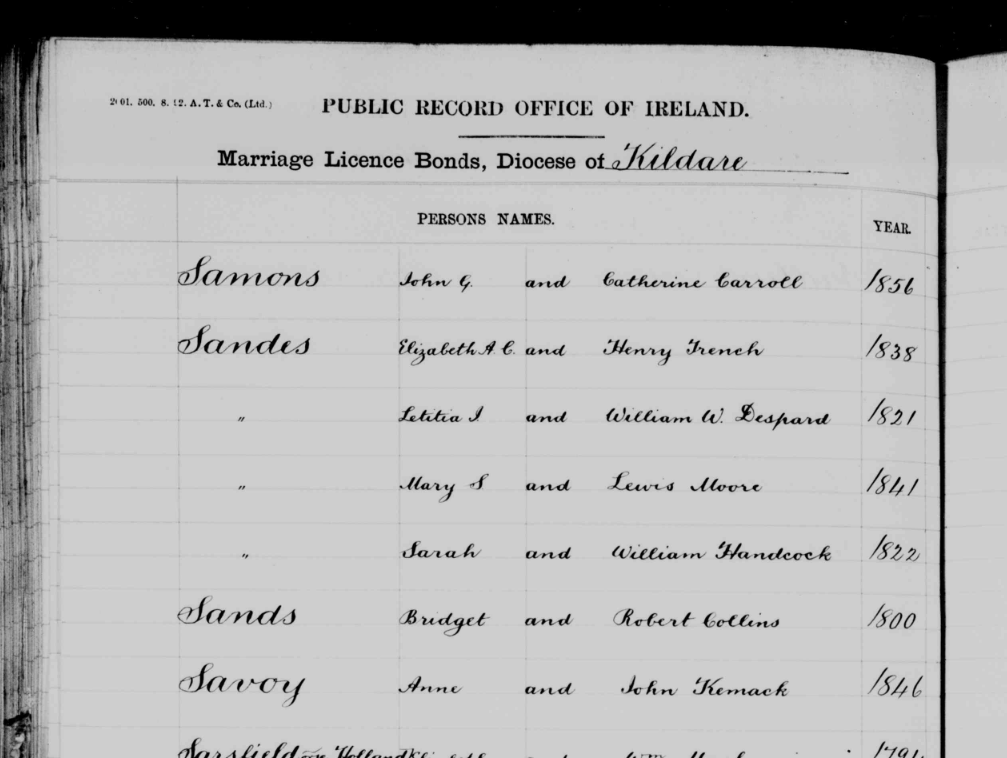 2001. 500. 8. 12. A. T. & Co. (Ltd.)
PUBLIC RECORD OFFICE OF IRELAND.
Marriage Licence Bonds, Diocese of Kildare
PERSONS NAMES. YEAR.
Samons John G. and Catherine Carroll 1856
Sandes Elizabeth A C. and Henry French 1838
" Letitia I and William W. Despard 1821
" Mary S and Lewis Moore 1841
" Sarah and William Handcock 1822
Sands Bridget and Robert Collins 1800
Savoy Anne and John Kemack 1846
Sarsfield Holland